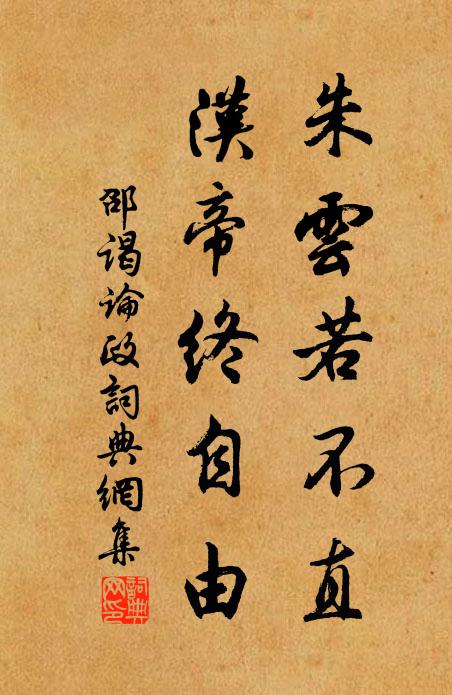 朱雲若不直
漢帝終自由
邵謁論政詞典網集
詞典網印